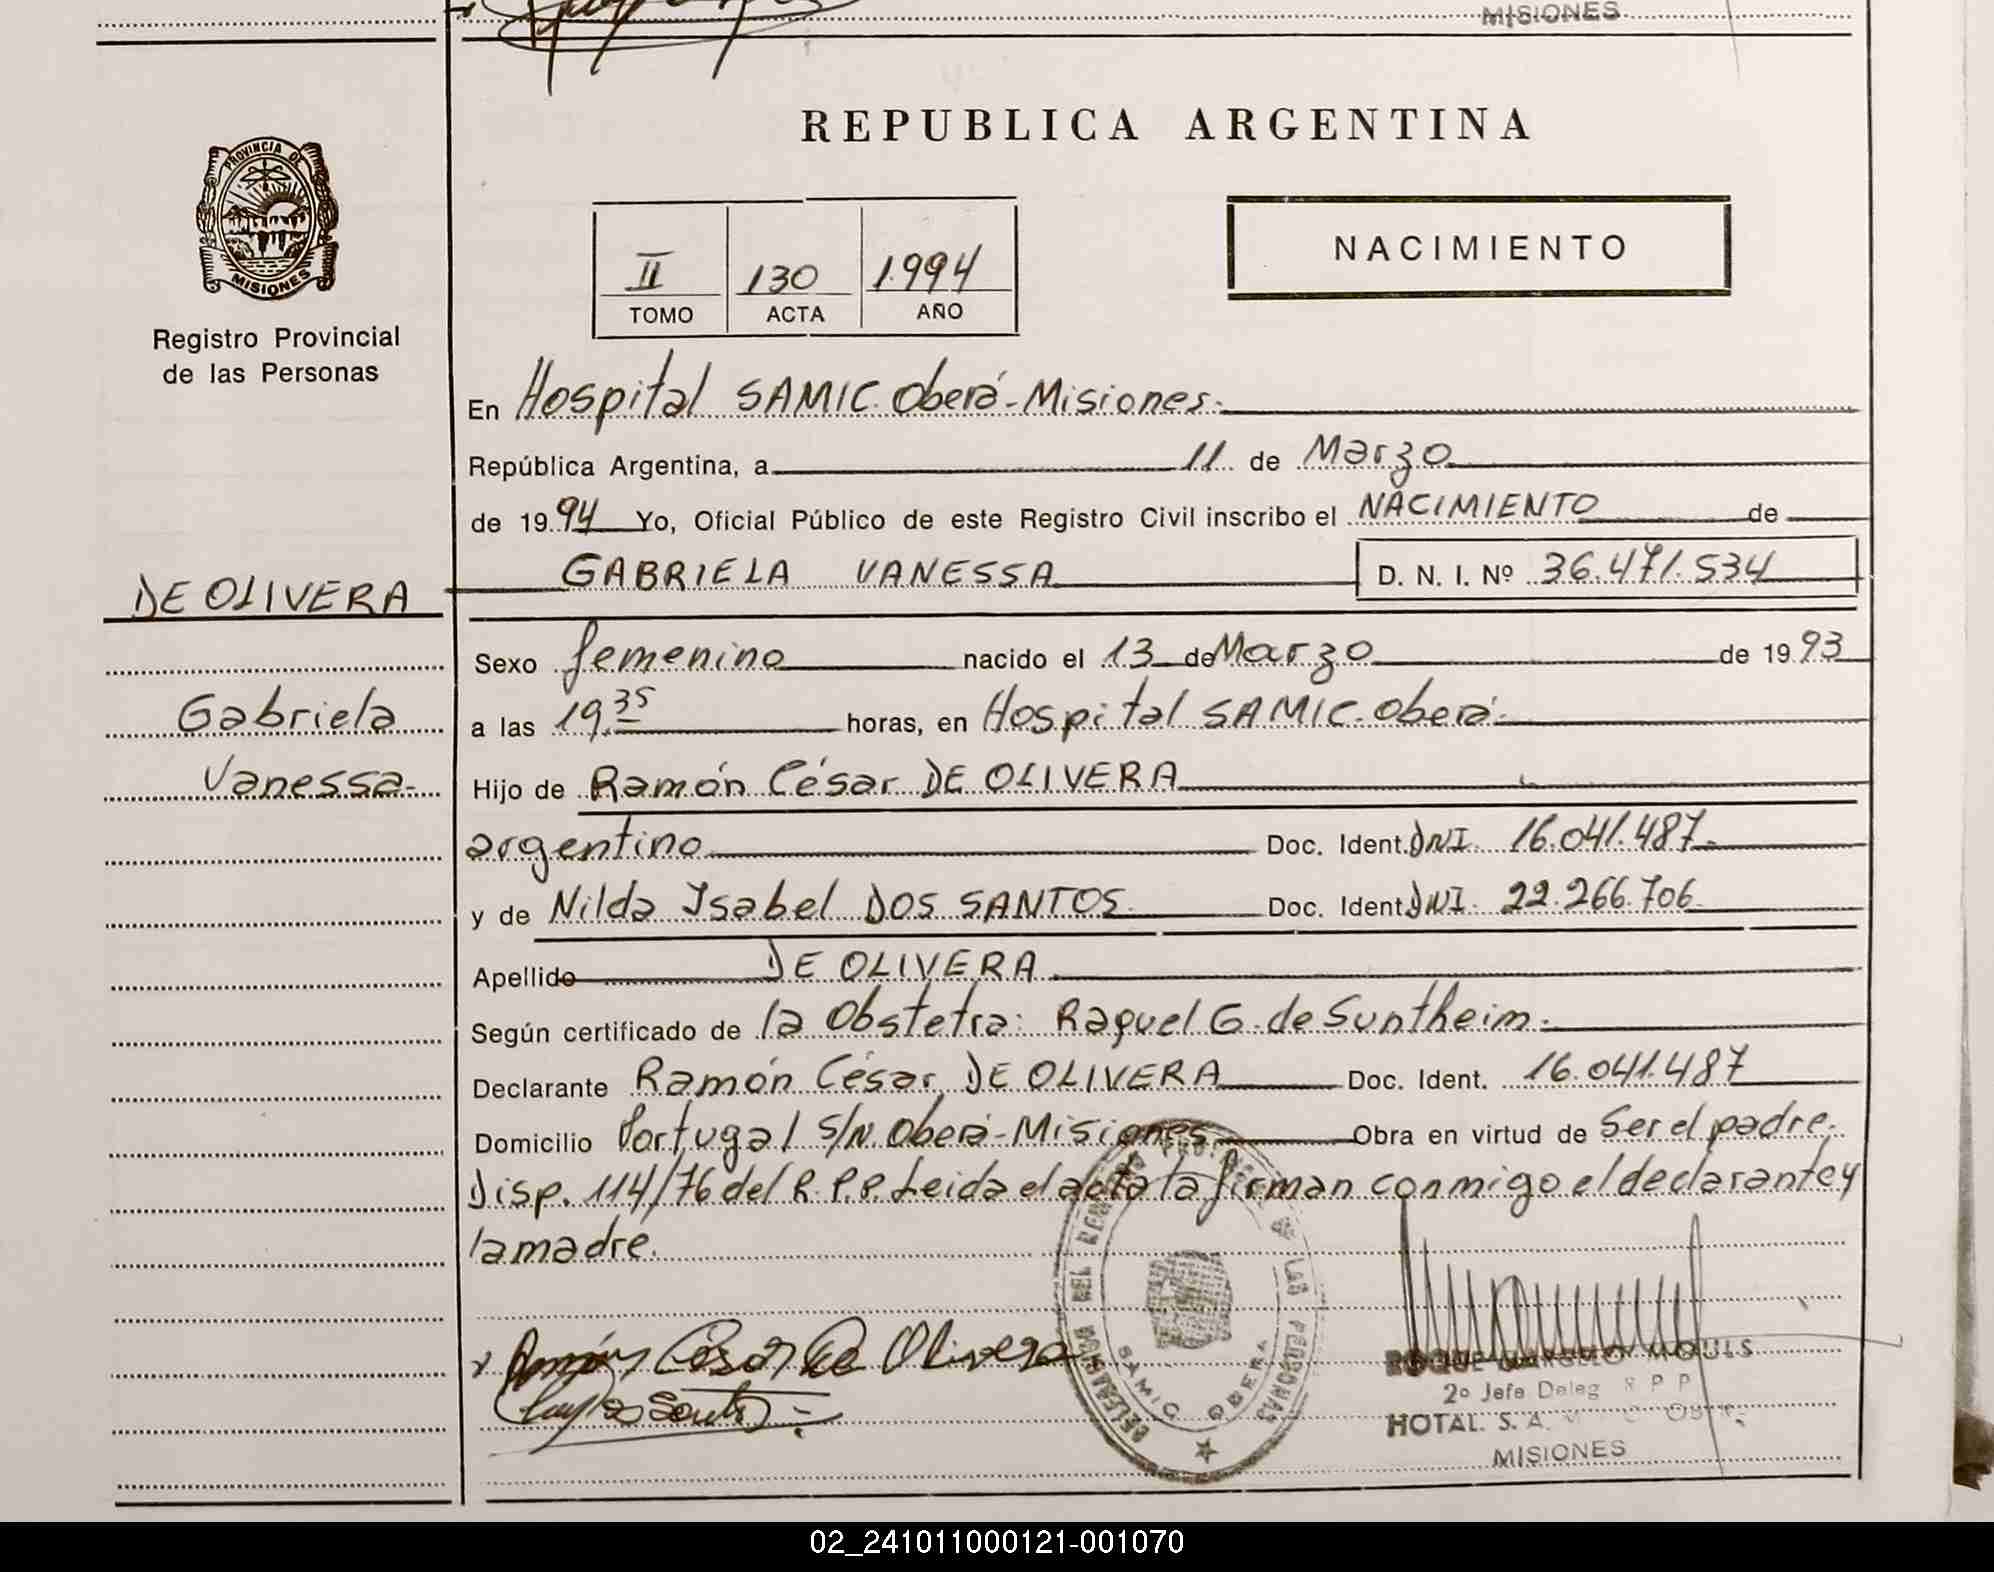 MISIONES
REPUBLICA ARGENTINA
PROVINCIA DE
MISIONES
Registro Provincial
de las Personas
II 130 1.994
TOMO ACTA AÑO
NACIMIENTO
En Hospital SAMIC. Oberá-Misiones.
República Argentina, a 11 de Marzo
de 19 94 Yo, Oficial Público de este Registro Civil inscribo el NACIMIENTO de
GABRIELA VANESSA D. N. I. Nº 36.471.534
DE OLIVERA
Sexo femenino nacido el 13 de Marzo de 19 93
Gabriela
a las 19.35 horas, en Hospital SAMIC-Oberá-
Vanessa-
Hijo de Ramón César DE OLIVERA
argentino Doc. Ident. DNI. 16.041.487-
y de Nilda Isabel DOS SANTOS Doc. Ident. DNI. 22.266.706
Apellido DE OLIVERA
Según certificado de la Obstetra: Raquel G. de Suntheim.
Declarante Ramón César DE OLIVERA Doc. Ident. 16.041.487
Domicilio Portugal S/N. Oberá-Misiones Obra en virtud de Ser el padre.
Disp. 114/76 del R.P.P. Leida el acta la firman conmigo el declarante y
la madre.
Ramón Cesar De Olivera
DEL REGISTRO LAS PERSONAS
SAMIC OBERA
ROQUE MOULS
2º Jefe Deleg R P P
HOTAL. S. A.
MISIONES
02_241011000121-001070